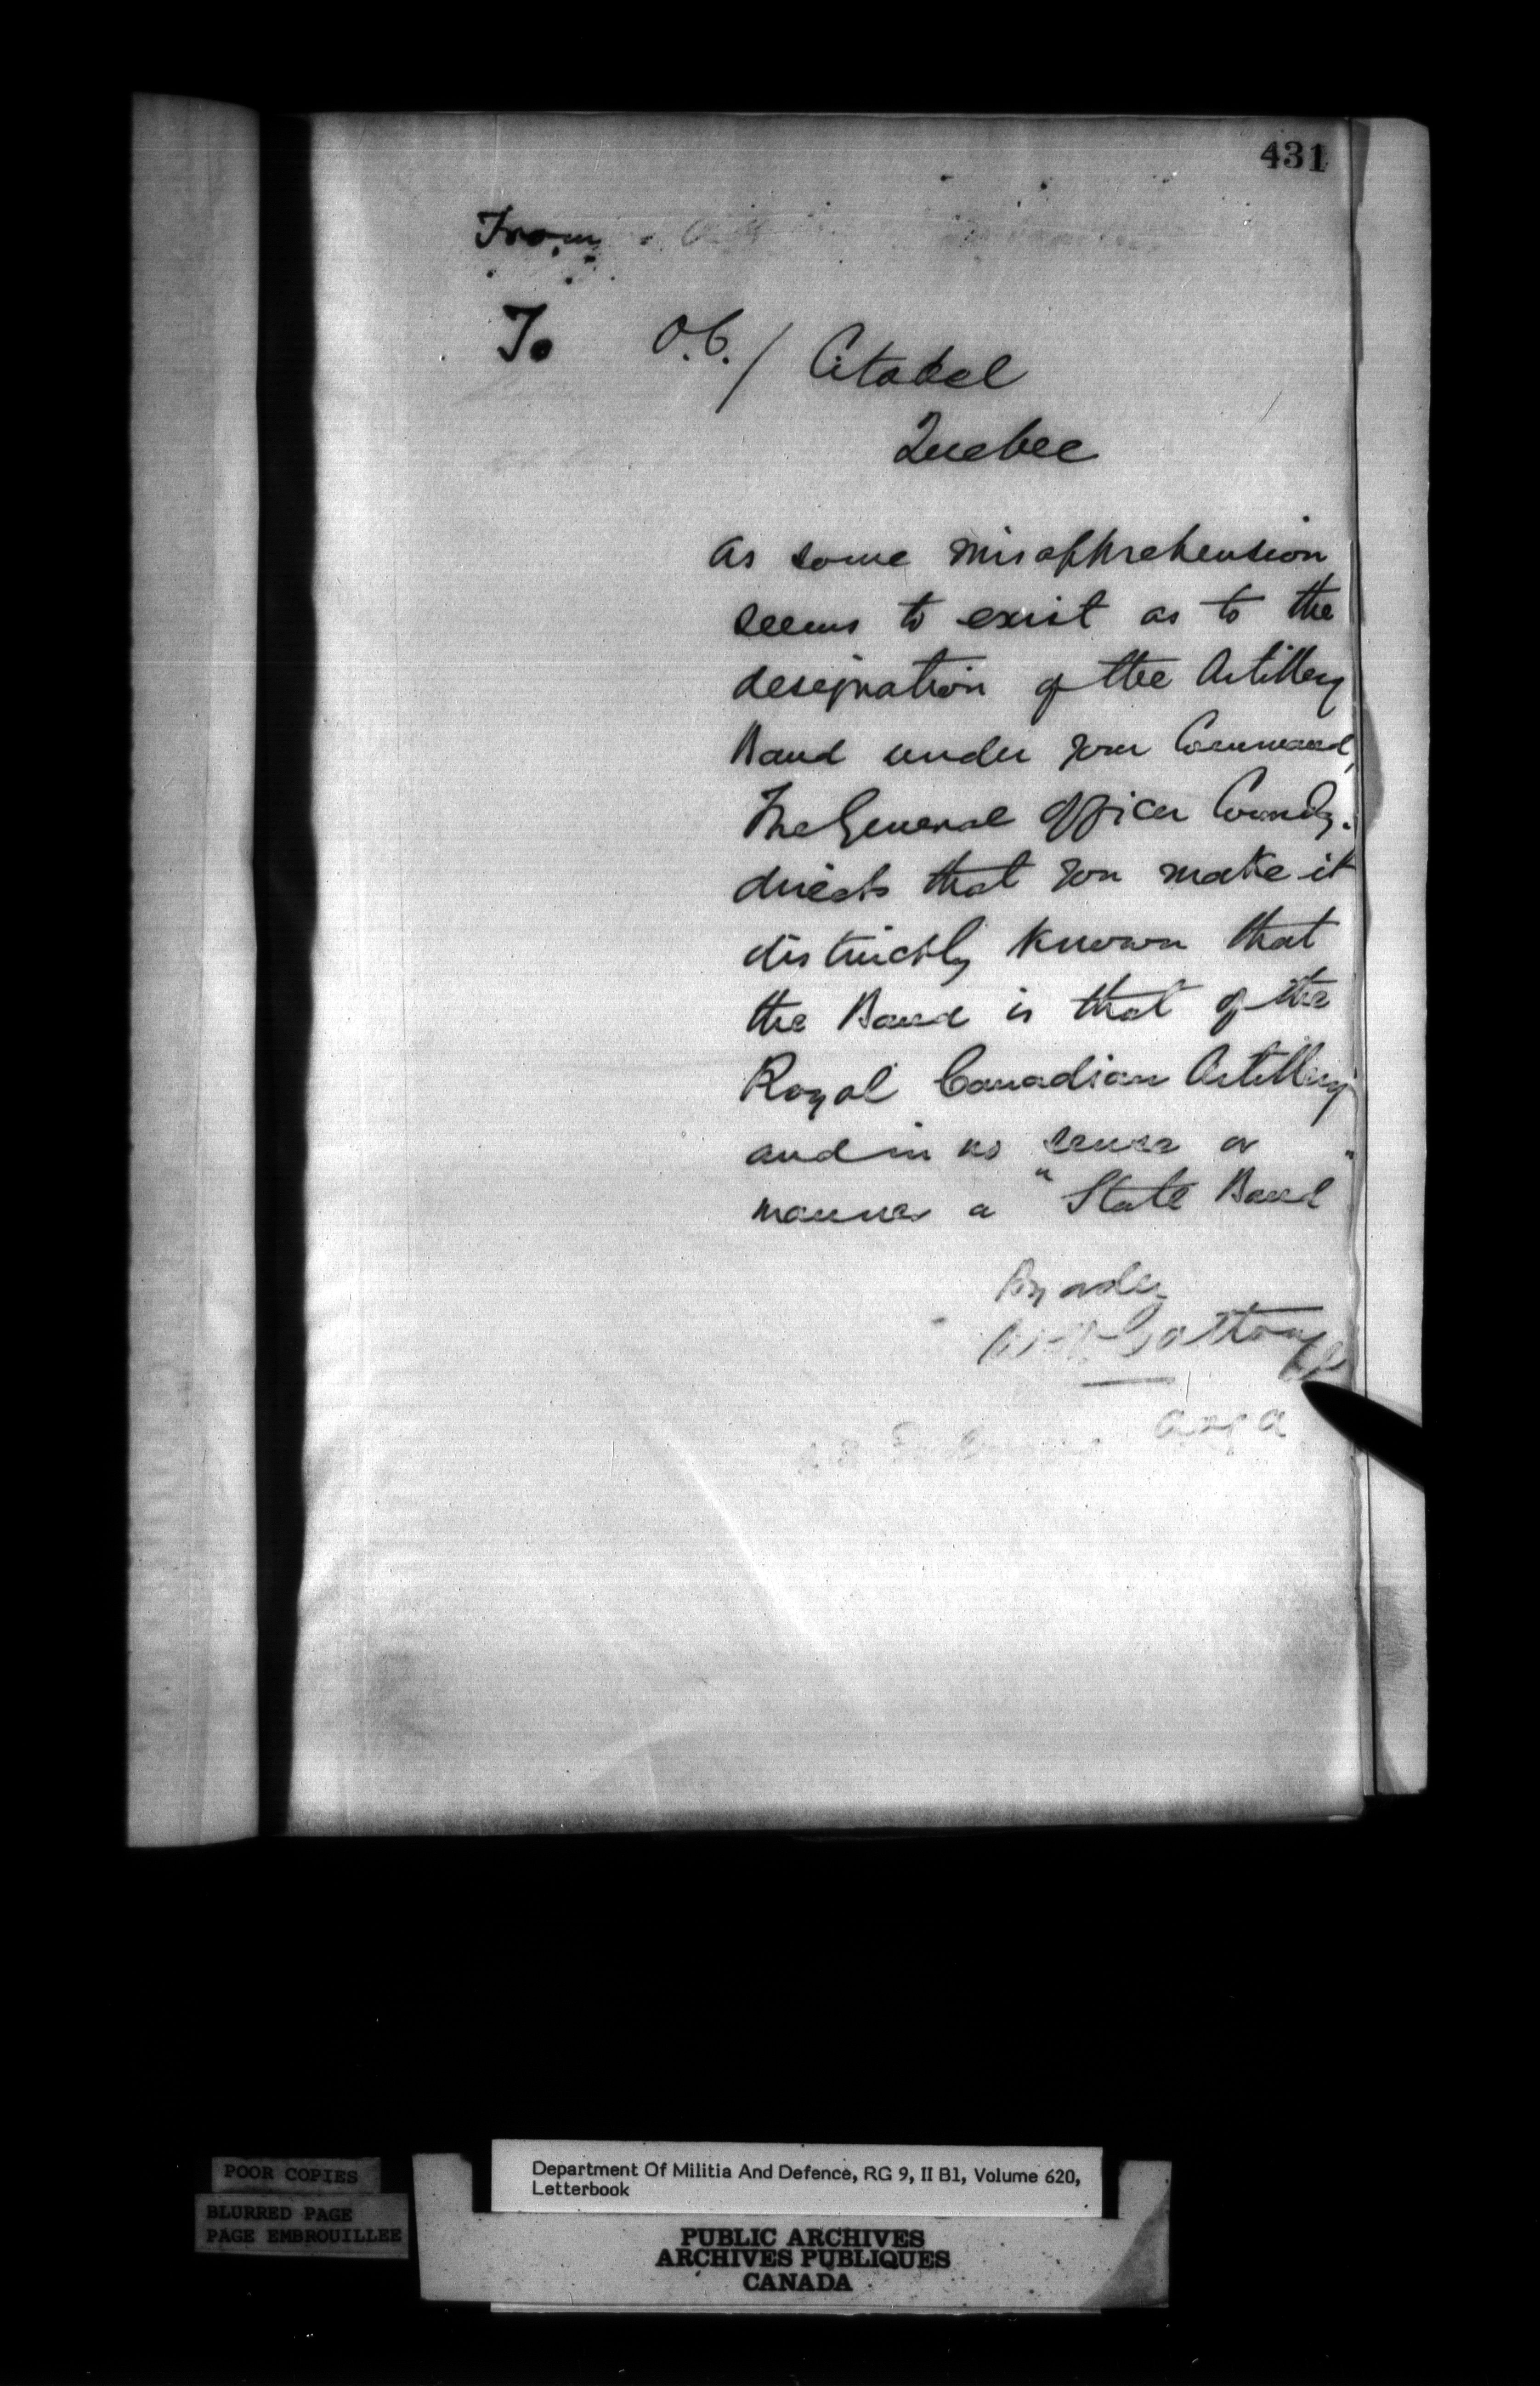 431
From
To O.C./ Citadel
Quebec
As some misapprehension
seems to exist as to the
designation of the Artillery
Band under your Command,
The General Officer Comdg.
directs that you make it
distinctly known that
the Band is that of the
Royal Canadian Artillery
and in no sense or
manner a "State Band"
By order
POOR COPIES
BLURRED PAGE
PAGE EMBROUILLEE
Department Of Militia And Defence, RG 9, II B1, Volume 620,
Letterbook
PUBLIC ARCHIVES
ARCHIVES PUBLIQUES
CANADA